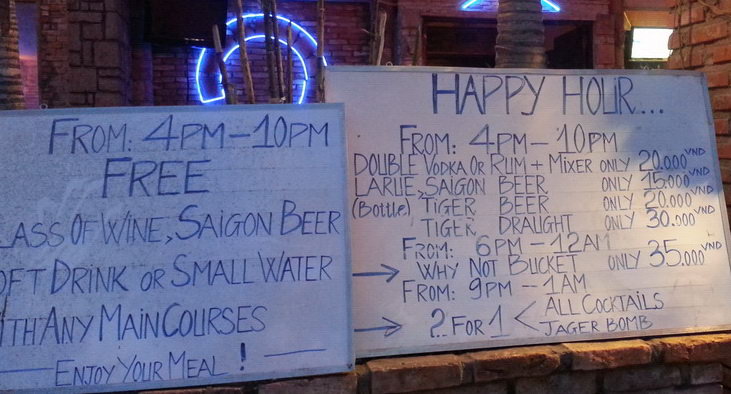 FROM: 4PM-10PM
FREE
LASS OF WINE, SAIGON BEER
OFT DRINK OR SMALL WATER
ITH ANY MAIN COURSES
ENJOY YOUR MEAL!
HAPPY HOUR...
FROM: 4PM-10PM
DOUBLE VODKA OR RUM + MIXER ONLY 20.000 VND
LARUE, SAIGON BEER ONLY 15.000 VND
(Bottle) TIGER BEER ONLY 20.000 VND
TIGER DRAUGHT ONLY 30.000 VND
FROM: 6PM-12AM
→ WHY NOT BUCKET ONLY 35.000 VND
FROM: 9PM-1AM
→ 2 FOR 1 < ALL COCKTAILS
JAGER BOMB